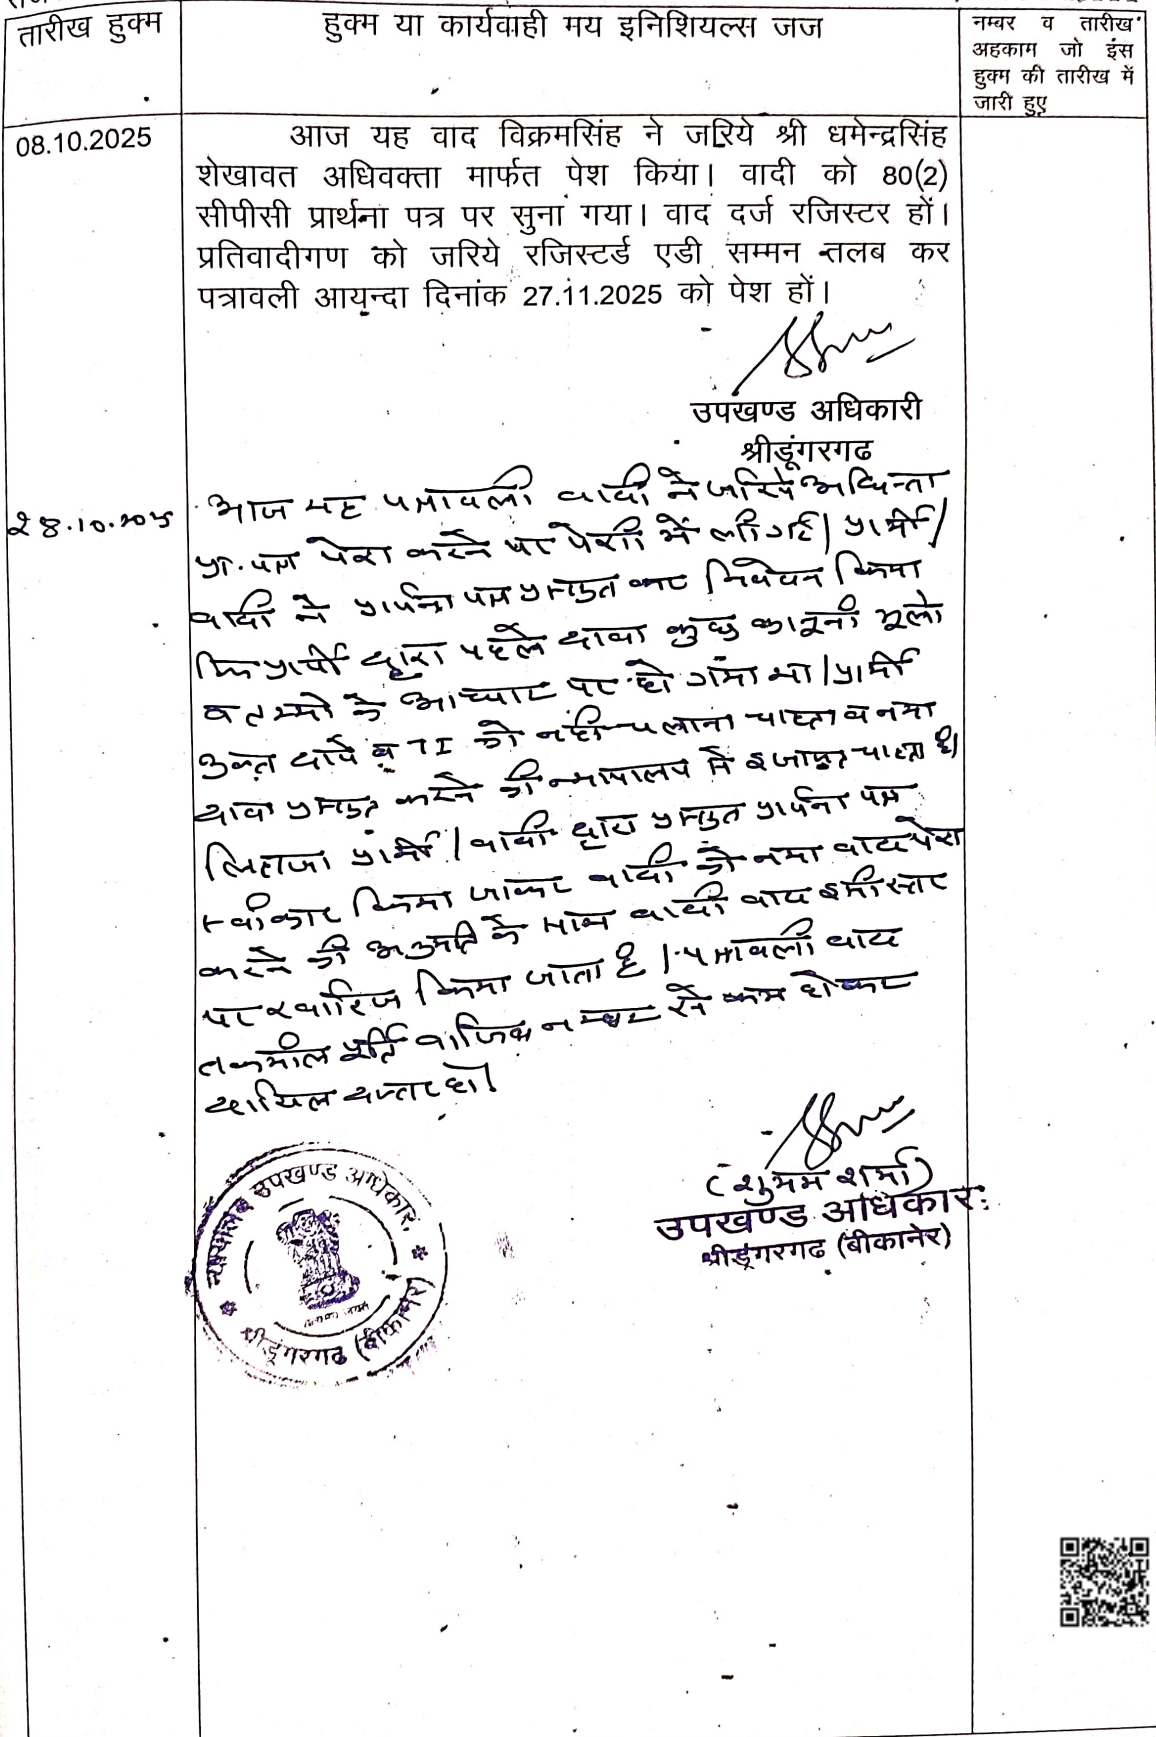 तारीख हुक्म
हुक्म या कार्यवाही मय इनिशियल्स जज
नम्बर व तारीख
अहकाम जो इंस
हुक्म की तारीख में
जारी हुए
08.10.2025
आज यह वाद विक्रमसिंह ने जरिये श्री धमेन्द्रसिंह
शेखावत अधिवक्ता मार्फत पेश किया। वादी को 80(2)
सीपीसी प्रार्थना पत्र पर सुना गया। वाद दर्ज रजिस्टर हों।
प्रतिवादीगण को जरिये रजिस्टर्ड एडी सम्मन तलब कर
पत्रावली आयन्दा दिनांक 27.11.2025 को पेश हों।
उपखण्ड अधिकारी
श्रीडूंगरगढ
28.10.2025
आज यह पत्रावली वादी ने जरिये अधिवक्ता
प्रा. पत्र पेश करने पर पेशी में ली गई। प्रार्थी/
वादी ने प्रार्थना पत्र प्रस्तुत कर निवेदन किया
कि प्रार्थी द्वारा पहले दावा कुछ कानूनी भूलो
व तथ्यो के आधार पर हो गया था। प्रार्थी
उक्त दावे व TI को नहीं चलाना चाहता व नया
दावा प्रस्तुत करने की न्यायालय से इजाजत चाहता है।
लिहाजा प्रार्थी/वादी द्वारा प्रस्तुत प्रार्थना पत्र
स्वीकार किया जाकर वादी को नया वाद पेश
करने की अनुमति के साथ वादी वाद इसी स्तर
पर खारिज किया जाता है। पत्रावली वाद
तकमील पूर्ति नम्बर से कम होकर
दाखिल दफ्तर हो।
(शुभम शर्मा)
उपखण्ड अधिकारी
श्रीडूंगरगढ (बीकानेर)
न्यायालय उपखण्ड अधिकारी
श्रीडूंगरगढ (बीकानेर)